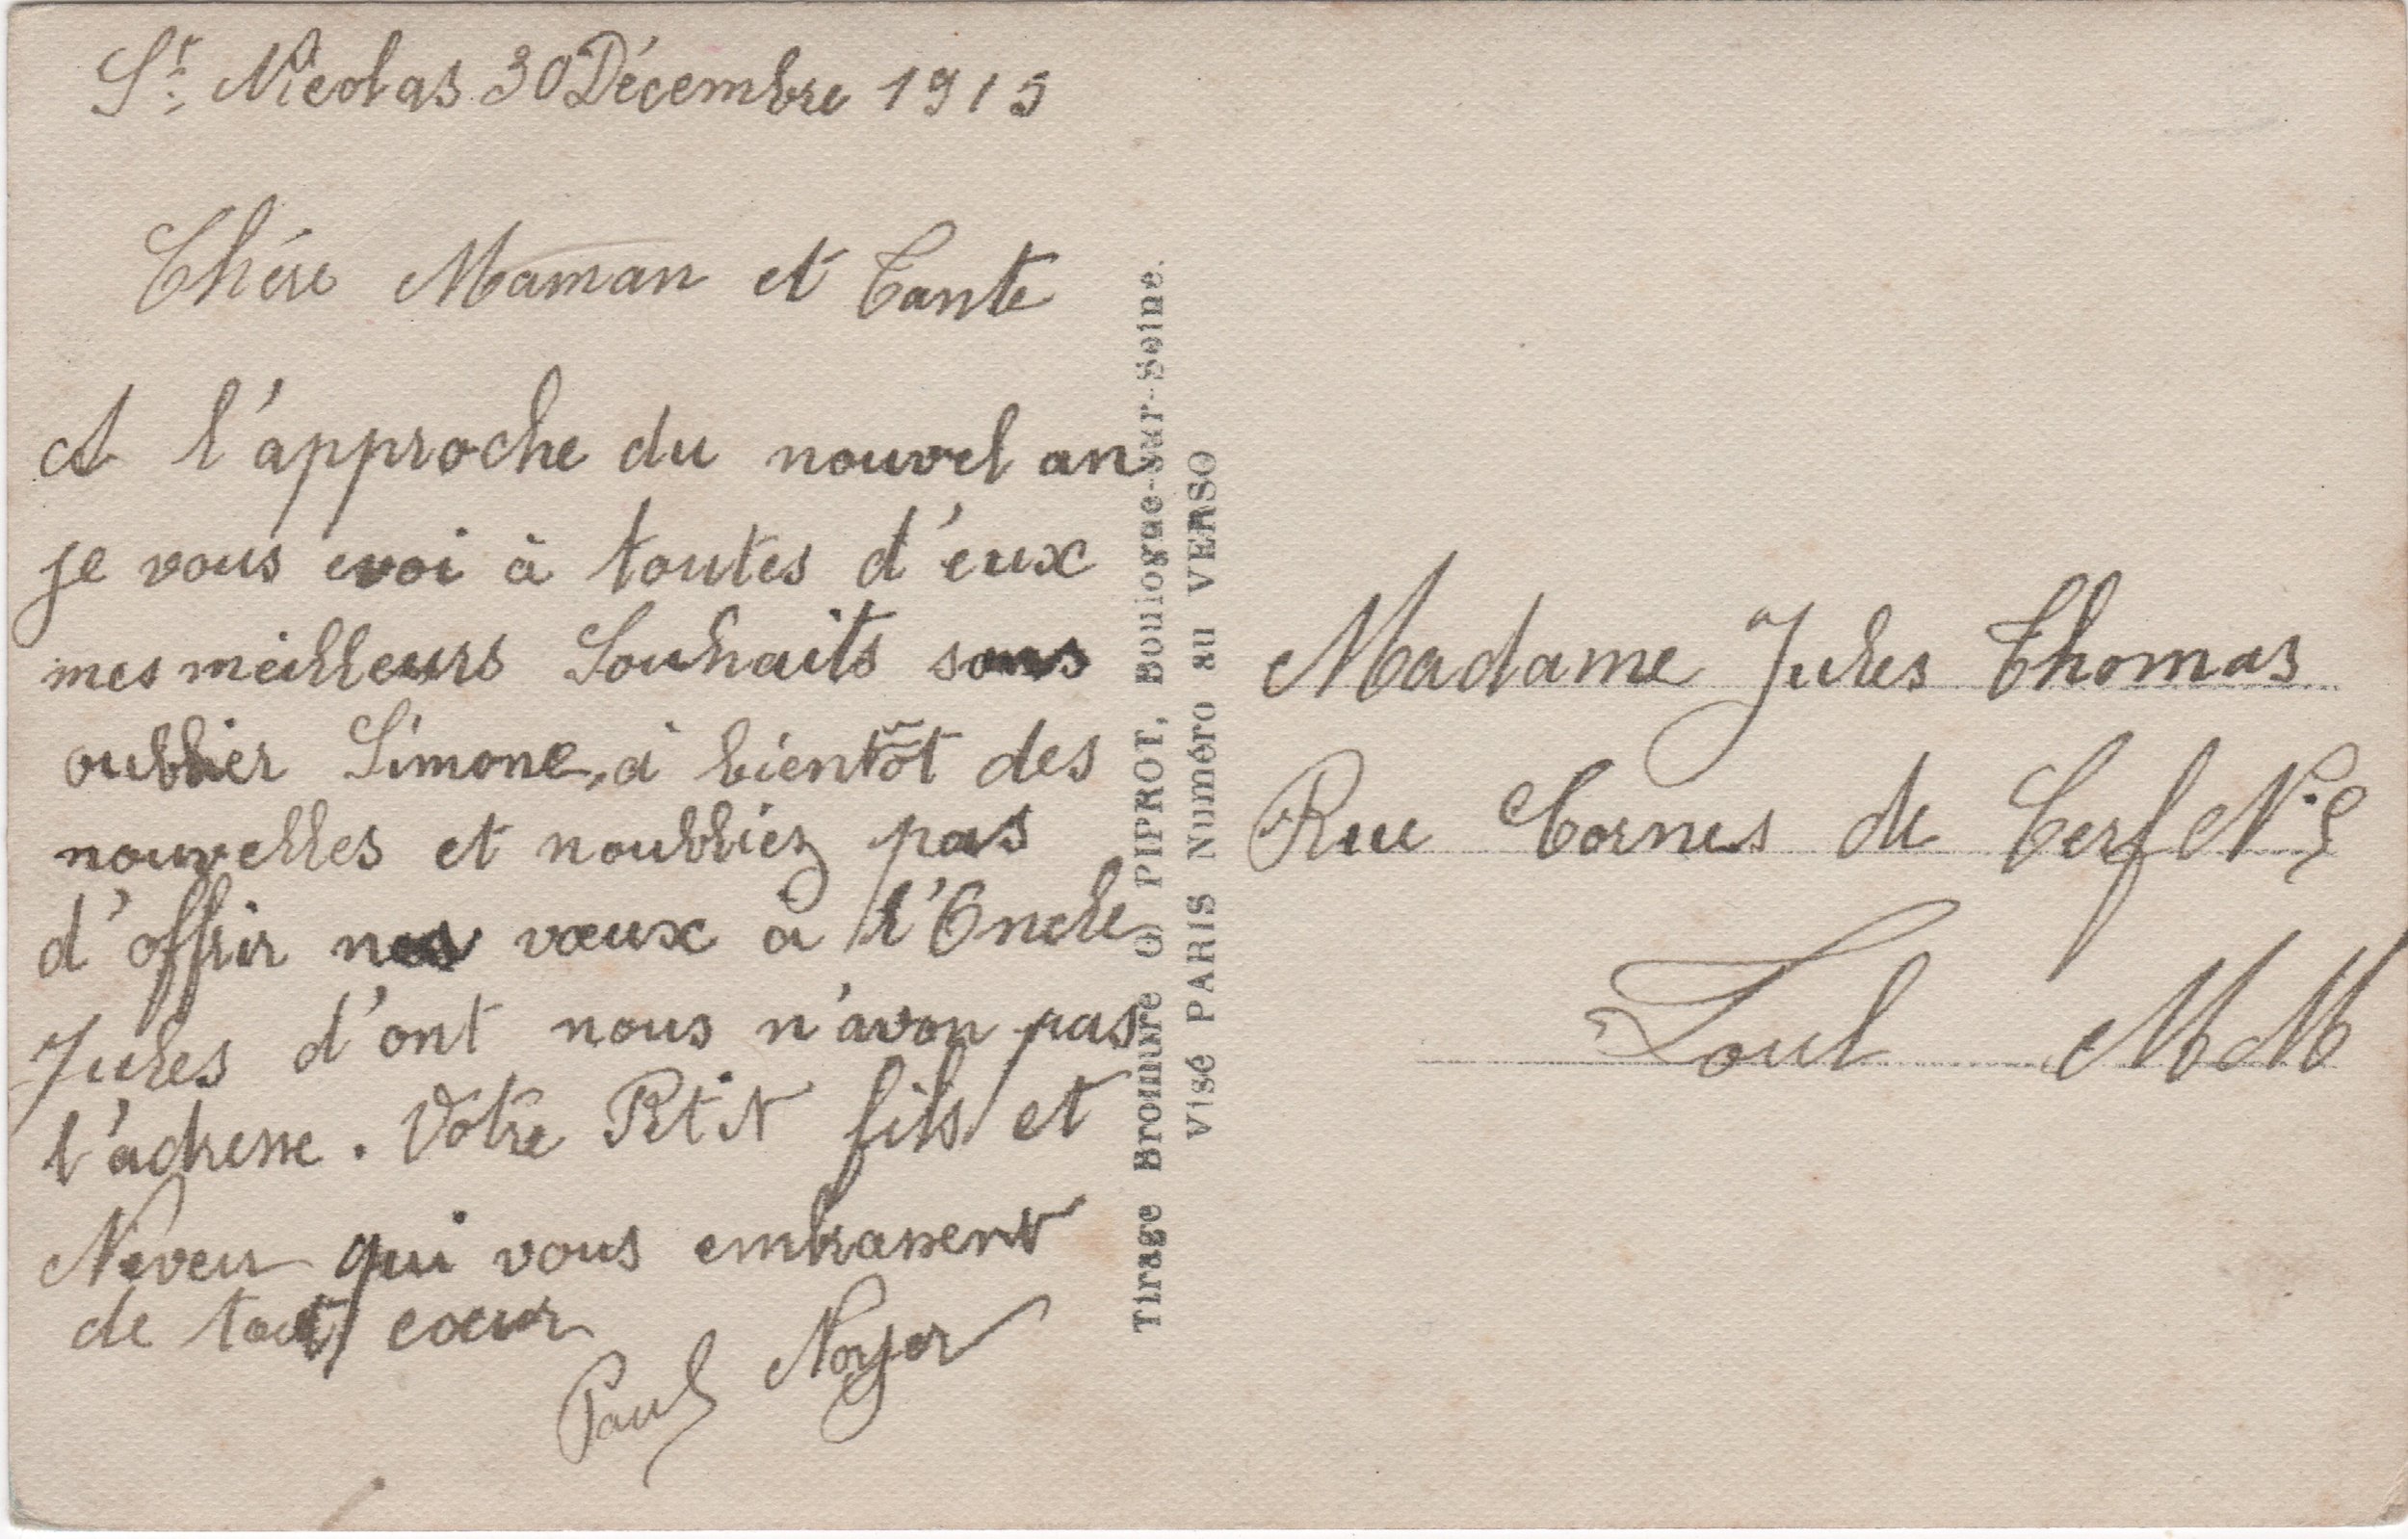 St. Nicolas 30 Décembre 1915
Chére Maman et Tante
A l'approche du nouvel an
je vous evoi à toutes d'eux
mes meilleurs Souhaits sans
oublier Simone, à bientôt des
nouvelles et noubliez pas
d'offrir nos vœux à l'Oncle
Jules d'ont nous n'avon pas
l'adresse. Votre Petit fils et
Neveu qui vous embrassent
de tout cœur
Paul Noyer
Tirage Bromure O PIPROT, Boulogne-sur-Seine.
Visé PARIS Numéro au VERSO
Madame Jules Thomas
Rue Cornes de Cerf N°
Toul M M